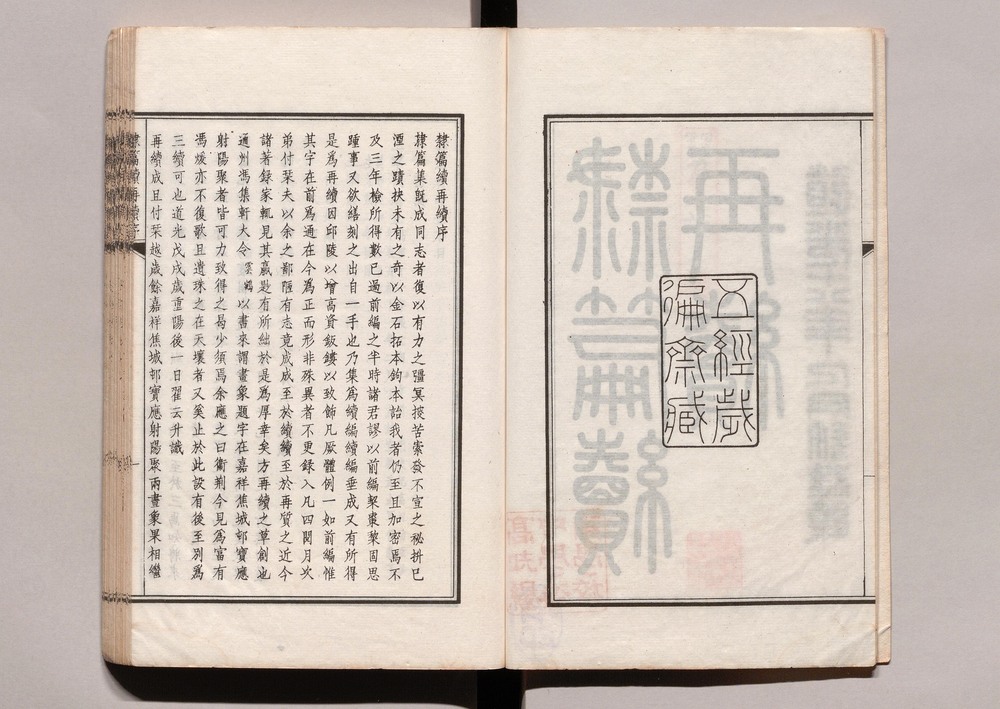 五經歲
徧齋藏
隸篇續再續序
隸篇集既成同志者復以有力之彊冥搜苦索發不宣之秘拼已
湮之蹟抉未有之奇以金石拓本鈎本詒我者仍至且加密焉不
及三年檢所得數已過前編之半時諸君謬以前編契棗黎固思
踵事又欲繕刻之出自一手也乃集為續編續編垂成又有所得
是為再續因邱陵以增高資鈑鏤以致飾凡厥體例一如前編惟
其字在前為通在今為正而形非殊異者不更錄入凡四閱月次
弟付栞夫以余之鄙陋有志竟成成至於續續至於再質之近今
諸著錄家輒見其贏匙有所絀於是為厚幸矣方再續之草創也
通州馮集軒大令雲鵷以書來謂畫象題字在嘉祥焦城邨寶應
射陽聚者皆可力致得之曷少須焉余應之曰衛荊今見為富有
馮煖亦不復歌且遺珠之在天壤者又奚止於此設有後至別為
三續可也道光戊戌歲重陽後一日翟云升識
再續成且付栞越歲餘嘉祥焦城邨寶應射陽聚兩畫象果相繼
隸篇續再續序